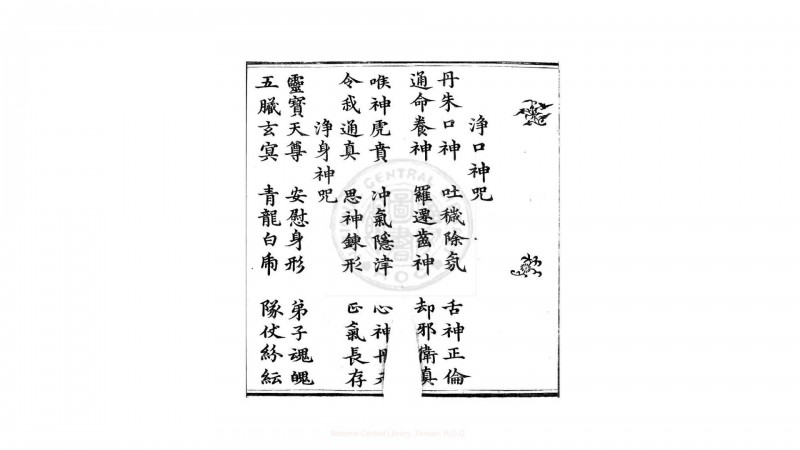 淨口神咒
丹朱口神 吐穢除氛 舌神正倫
通命養神 羅邏齒神 却邪衛真
喉神虎賁 冲氣隱津 心神丹元
令我通真 思神鍊形 正氣長存
淨身神咒
靈寶天尊 安慰身形 弟子魂魄
五臟玄冥 青龍白虎 隊仗紛紜